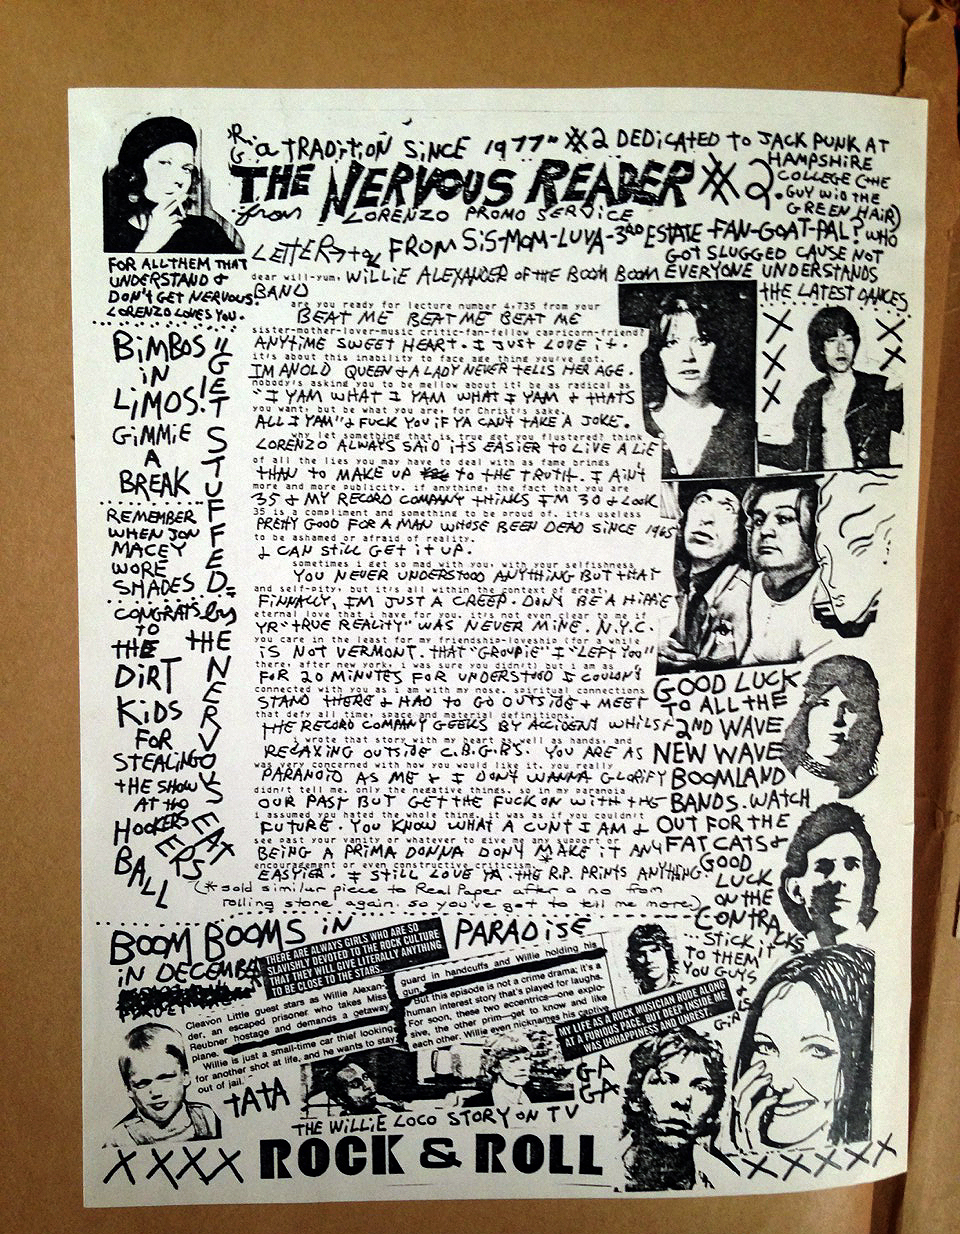 "R.G. a TRADITION SINCE 1977" #2 DEDICATED TO JACK PUNK AT
HAMPSHIRE
COLLEGE (THE
GUY WID THE
GREEN HAIR)
THE NERVOUS READER #2.
from LORENZO PROMO SERVICE
LETTER → to FROM SIS-MOM-LUVA-3RD ESTATE-FAN-GOAT-PAL? WHO
GOT SLUGGED CAUSE NOT
EVERYONE UNDERSTANDS
THE LATEST DANCES
FOR ALL THEM THAT
UNDERSTAND &
DON'T GET NERVOUS.
LORENZO LOVES YOU.
dear will-yum. WILLIE ALEXANDER OF THE BOOM BOOM
BAND
are you ready for lecture number 4,735 from your
BEAT ME BEAT ME BEAT ME
sister-mother-lover-music critic-fan-fellow capricorn-friend?
ANYTIME SWEET HEART. I JUST LOVE it.
it's about this inability to face age thing you've got.
IM AN OLD QUEEN & A LADY NEVER TELLS HER AGE.
nobody's asking you to be mellow about it! be as radical as
"I YAM WHAT I YAM WHAT I YAM & THATS
you want, but be what you are, for Christ's sake.
ALL I YAM" & FUCK YOU IF YA CAN'T TAKE A JOKE.
why let something that is true get you flustered? think
LORENZO ALWAYS SAID ITS EASIER TO LIVE A LIE
of all the lies you may have to deal with as fame brings
THAN TO MAKE UP TO THE TRUTH. I AIN'T
more and more publicity. if anything, the fact that you are
35 & MY RECORD COMPANY THINKS I'M 30 & LOOK
35 is a compliment and something to be proud of. it's useless
PRETTY GOOD FOR A MAN WHOSE BEEN DEAD SINCE 1965
to be ashamed or afraid of reality.
& I CAN STILL GET IT UP.
sometimes i get so mad with you, with your selfishness
YOU NEVER UNDERSTOOD ANYTHING BUT THAT
and self-pity, but it's all within the context of great,
FINNALLY, I'M JUST A CREEP. DON'T BE A HIPPIE
eternal love that i have for you. it's not ever clear to me if
YR "TRUE REALITY" WAS NEVER MINE. N.Y.C.
you care in the least for my friendship-loveship (for a while
IS NOT VERMONT. THAT "GROUPIE" I "LEFT YOU"
there, after new york, i was sure you didn't) but i am as
FOR 20 MINUTES FOR UNDERSTOOD I COULDN'T
connected with you as i am with my nose. spiritual connections
STAND THERE & HAD TO GO OUTSIDE & MEET
that defy all time, space and material definitions.
THE RECORD COMPANY GEEKS BY ACCIDENT WHILST
i wrote that story with my heart as well as hands, and
RELAXING OUTSIDE C.B.G.B'S. YOU ARE AS
was very concerned with how you would like it. you really
PARANOID AS ME & I DON'T WANNA GLORIFY
didn't tell me. only the negative things. so in my paranoia
OUR PAST BUT GET THE FUCK ON WITH THE
i assumed you hated the whole thing. it was as if you couldn't
FUTURE. YOU KNOW WHAT A CUNT I AM &
see past your vanity or whatever to give me any support or
BEING A PRIMA DONNA DON'T MAKE IT ANY
encouragement or even constructive criticism.
EASYIER. I STILL LOVE YA. THE R.P. PRINTS ANYTHING
(*sold similar piece to Real Paper after a no from
rolling stone again. so you've got to tell me more)
BIMBOS
IN
LIMOS!
GIMMIE
A
BREAK
REMEMBER
WHEN JON
MACEY
WORE
SHADES
CONGRATS
TO
THE
DIRT
KIDS
FOR
STEALING
THE SHOW
AT the
HOOKERS
BALL
"GET STUFFED"
by
THE NERVOUS EATERS
GOOD LUCK
TO ALL THE
2ND WAVE
NEW WAVE
BOOMLAND
BANDS. WATCH
OUT FOR THE
FAT CATS &
GOOD
LUCK
ON THE
CONTRACKS
...STICK IT
TO THEM
YOU GUYS
&
BOOM BOOMS IN PARADISE
IN DECEMBA
THERE ARE ALWAYS GIRLS WHO ARE SO
SLAVISHLY DEVOTED TO THE ROCK CULTURE
THAT THEY WILL GIVE LITERALLY ANYTHING
TO BE CLOSE TO THE STARS.
Cleavon Little guest stars as Willie Alexan-
der, an escaped prisoner who takes Miss
Reubner hostage and demands a getaway
plane.
Willie is just a small-time car thief looking
for another shot at life, and he wants to stay
out of jail.
guard in handcuffs and Willie holding his
gun.
But this episode is not a crime drama; it's a
human interest story that's played for laughs.
For soon, these two eccentrics—one explo-
sive, the other prim—get to know and like
each other. Willie even nicknames his captive
MY LIFE AS A ROCK MUSICIAN RODE ALONG
AT A FURIOUS PACE, BUT DEEP INSIDE ME
WAS UNHAPPINESS AND UNREST.
TATA
GA
GA
THE WILLIE LOCO STORY ON TV
XXXX ROCK & ROLL XXXXXX